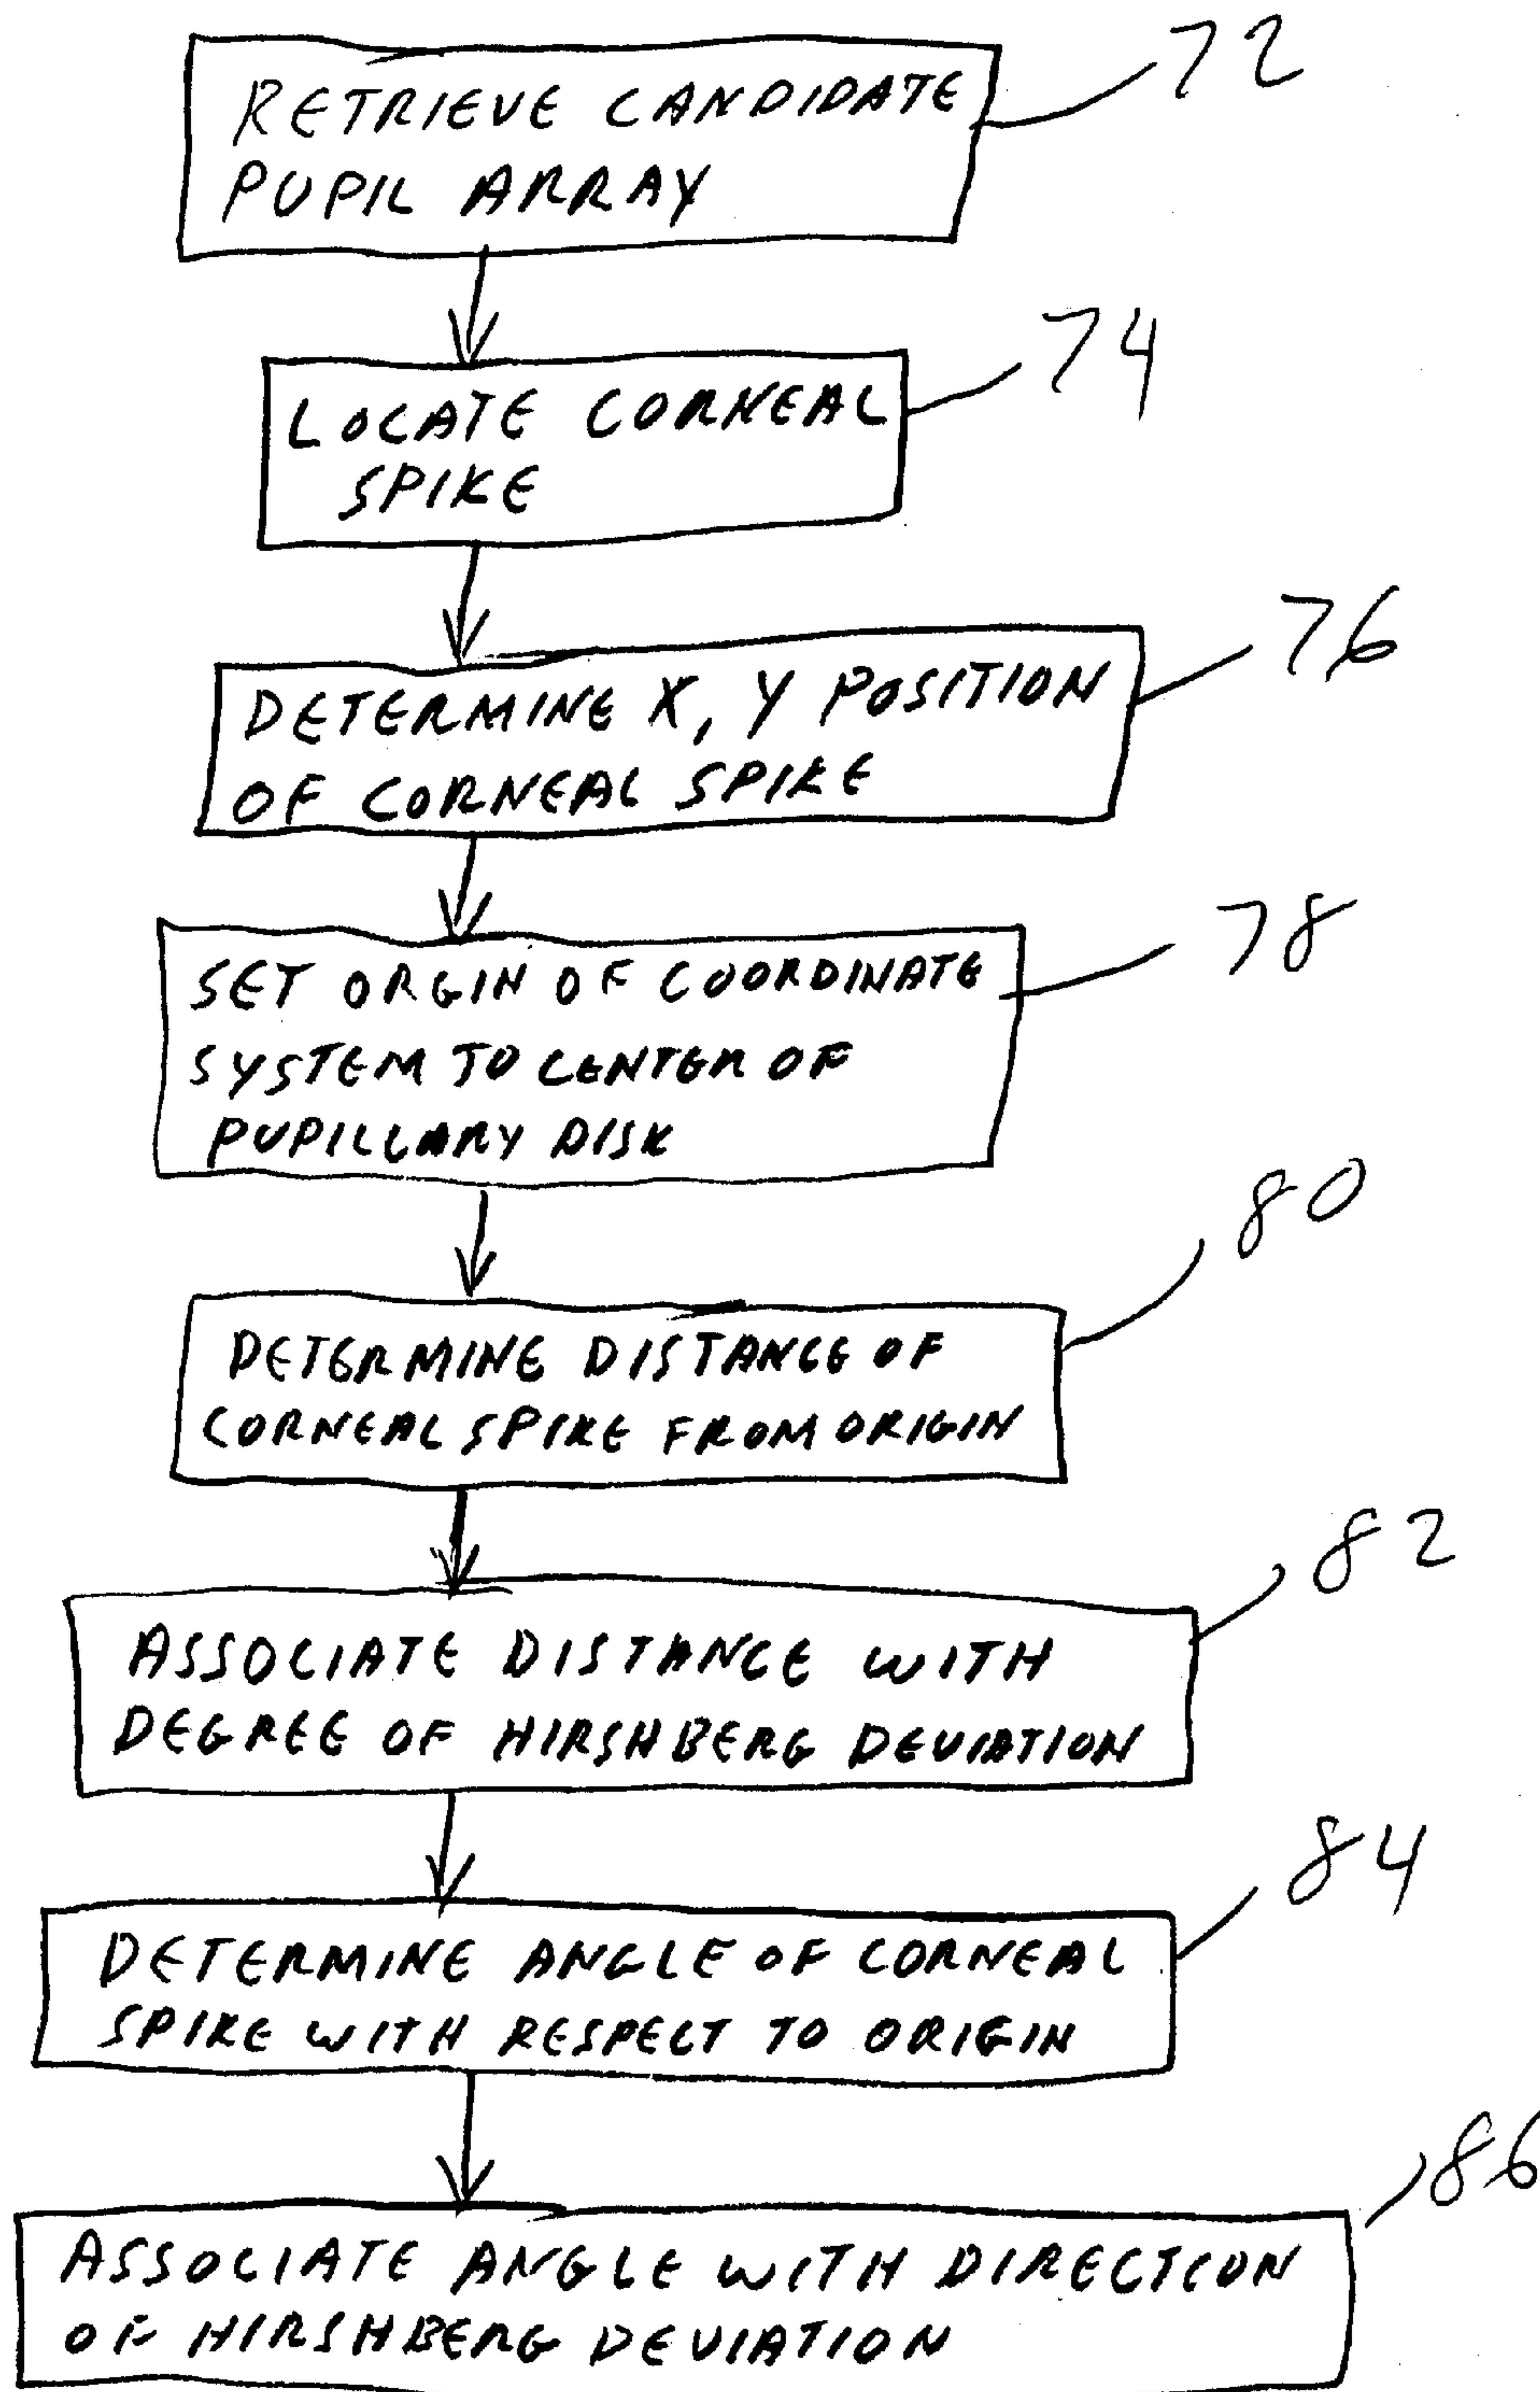 72
RETRIEVE CANDIDATE
PUPIL ARRAY
74
LOCATE CORNEAL
SPIKE
76
DETERMINE X, Y POSITION
OF CORNEAL SPIKE
78
SET ORGIN OF COORDINATE
SYSTEM TO CENTER OF
PUPILLARY DISK
80
DETERMINE DISTANCE OF
CORNEAL SPIKE FROM ORIGIN
82
ASSOCIATE DISTANCE WITH
DEGREE OF HIRSHBERG DEVIATION
84
DETERMINE ANGLE OF CORNEAL
SPIKE WITH RESPECT TO ORIGIN
86
ASSOCIATE ANGLE WITH DIRECTION
OF HIRSHBERG DEVIATION